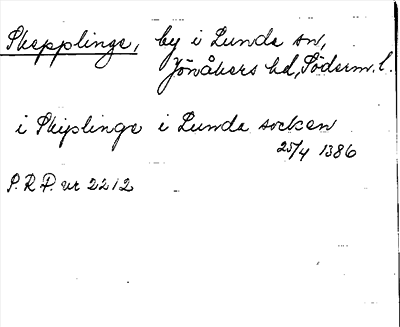 Skepplinge, by i Lunda sn,
Jönåkers hd, Söderm. l.
i Skiplinge i Lunda socken
25/4 1386
P.R.P. nr 2212